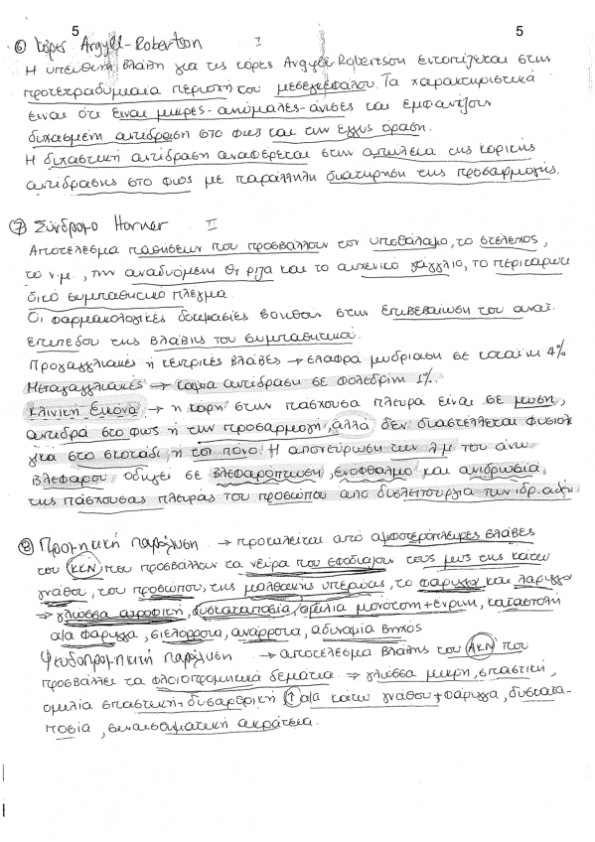 5 5
⑥ Κόρες Argyll-Robertson I
Η υπεύθυνη βλάβη για τις κόρες Argyll-Robertson εντοπίζεται στην
προτετραδύμαια περιοχή του μεσεγκεφάλου. Τα χαρακτηριστικά
είναι ότι είναι μικρές-ανώμαλες-άνισες και εμφανίζουν
διχασμένη αντίδραση στο φως και την εγγύς όραση.
Η διχαστική αντίδραση αναφέρεται στην απώλεια της κορικής
αντίδρασης στο φως με παράλληλη διατήρηση της προσαρμογής.
⑦ Σύνδρομο Horner II
Αποτέλεσμα παθήσεων που προσβάλλουν τον υποθάλαμο, το στέλεχος,
το ν.μ., την αναδυόμενη Θ1 ρίζα και το αυχενικό γάγγλιο, το περικαρωτι
δικό συμπαθητικό πλέγμα.
Οι φαρμακολογικές δοκιμασίες βοηθούν στην επιβεβαίωση του ανατ.
επιπέδου της βλάβης του συμπαθητικού.
Προγαγγλιακές ή κεντρικές βλάβες → ελαφρά μυδρίαση σε κοκαΐνη 4%
Μεταγαγγλιακές → καμία αντίδραση σε φολεδρίνη 1%.
Κλινική εικόνα → η κόρη στην πάσχουσα πλευρά είναι σε μύση,
αντιδρά στο φως ή την προσαρμογή, αλλά δεν διαστέλλεται φυσιολ
για στο σκοτάδι ή τον πόνο. Η απονεύρωση των λ.μ του άνω
βλεφάρου οδηγεί σε βλεφαρόπτωση, ενόφθαλμο και ανιδρωσία
της πάσχουσας πλευράς του προσώπου από δυσλειτουργία των ιδρ. αδέν
⑧ Προμηκική παράλυση → προκαλείται από αμφοτερόπλευρες βλάβες
του ΚΚΝ που προσβάλλουν τα νεύρα που εφοδιάζουν τους μυς της κάτω
γνάθου, του προσώπου, της μαλθακής υπερώας, το φάρυγγα και λάρυγγα
→ γλώσσα ατροφική, δυσκαταποσία, ομιλία μονότονη + ένρινη, καταστολή
α/α φάρυγγα, σιελόρροια, ανάρροια, αδυναμία βηχός
Ψευδοπρομηκική παράλυση → αποτέλεσμα βλάβης του ΑΚΝ που
προσβάλλει τα φλοιοπρομηκικά δεμάτια. → γλώσσα μικρή, σπαστική,
ομιλία σπαστική + δυσαρθρική ↑ α/α κάτω γνάθου + φάρυγγα, δυσκατα-
ποσία, συναισθηματική ακράτεια.